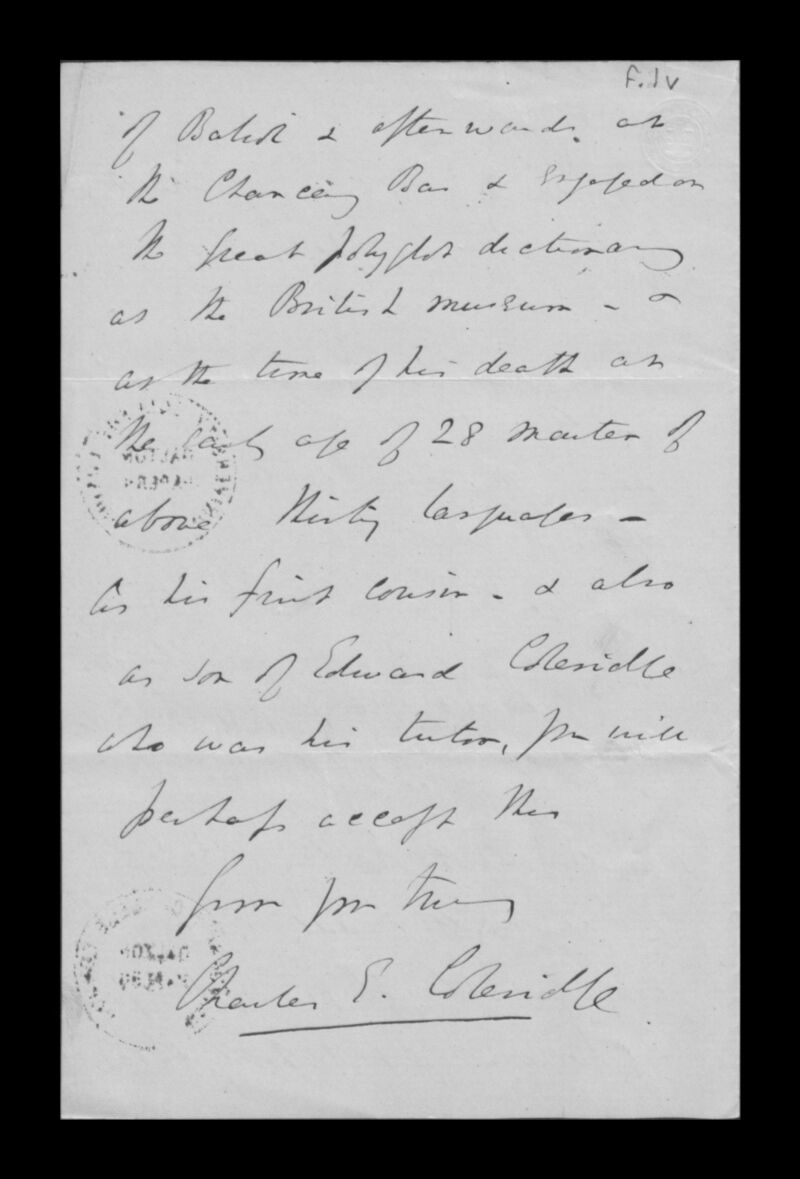 f.1v
of Baliol & afterwards at
the Chancery Bar & Engaged on
the great polyglot dictionary
at the British museum - &
at the time of his death at
the early age of 28 master of
above thirty languages -
As his first cousin - & also
as son of Edward Coleridge
who was his tutor, you will
perhaps accept this
from yrs truly
Charles E. Coleridge